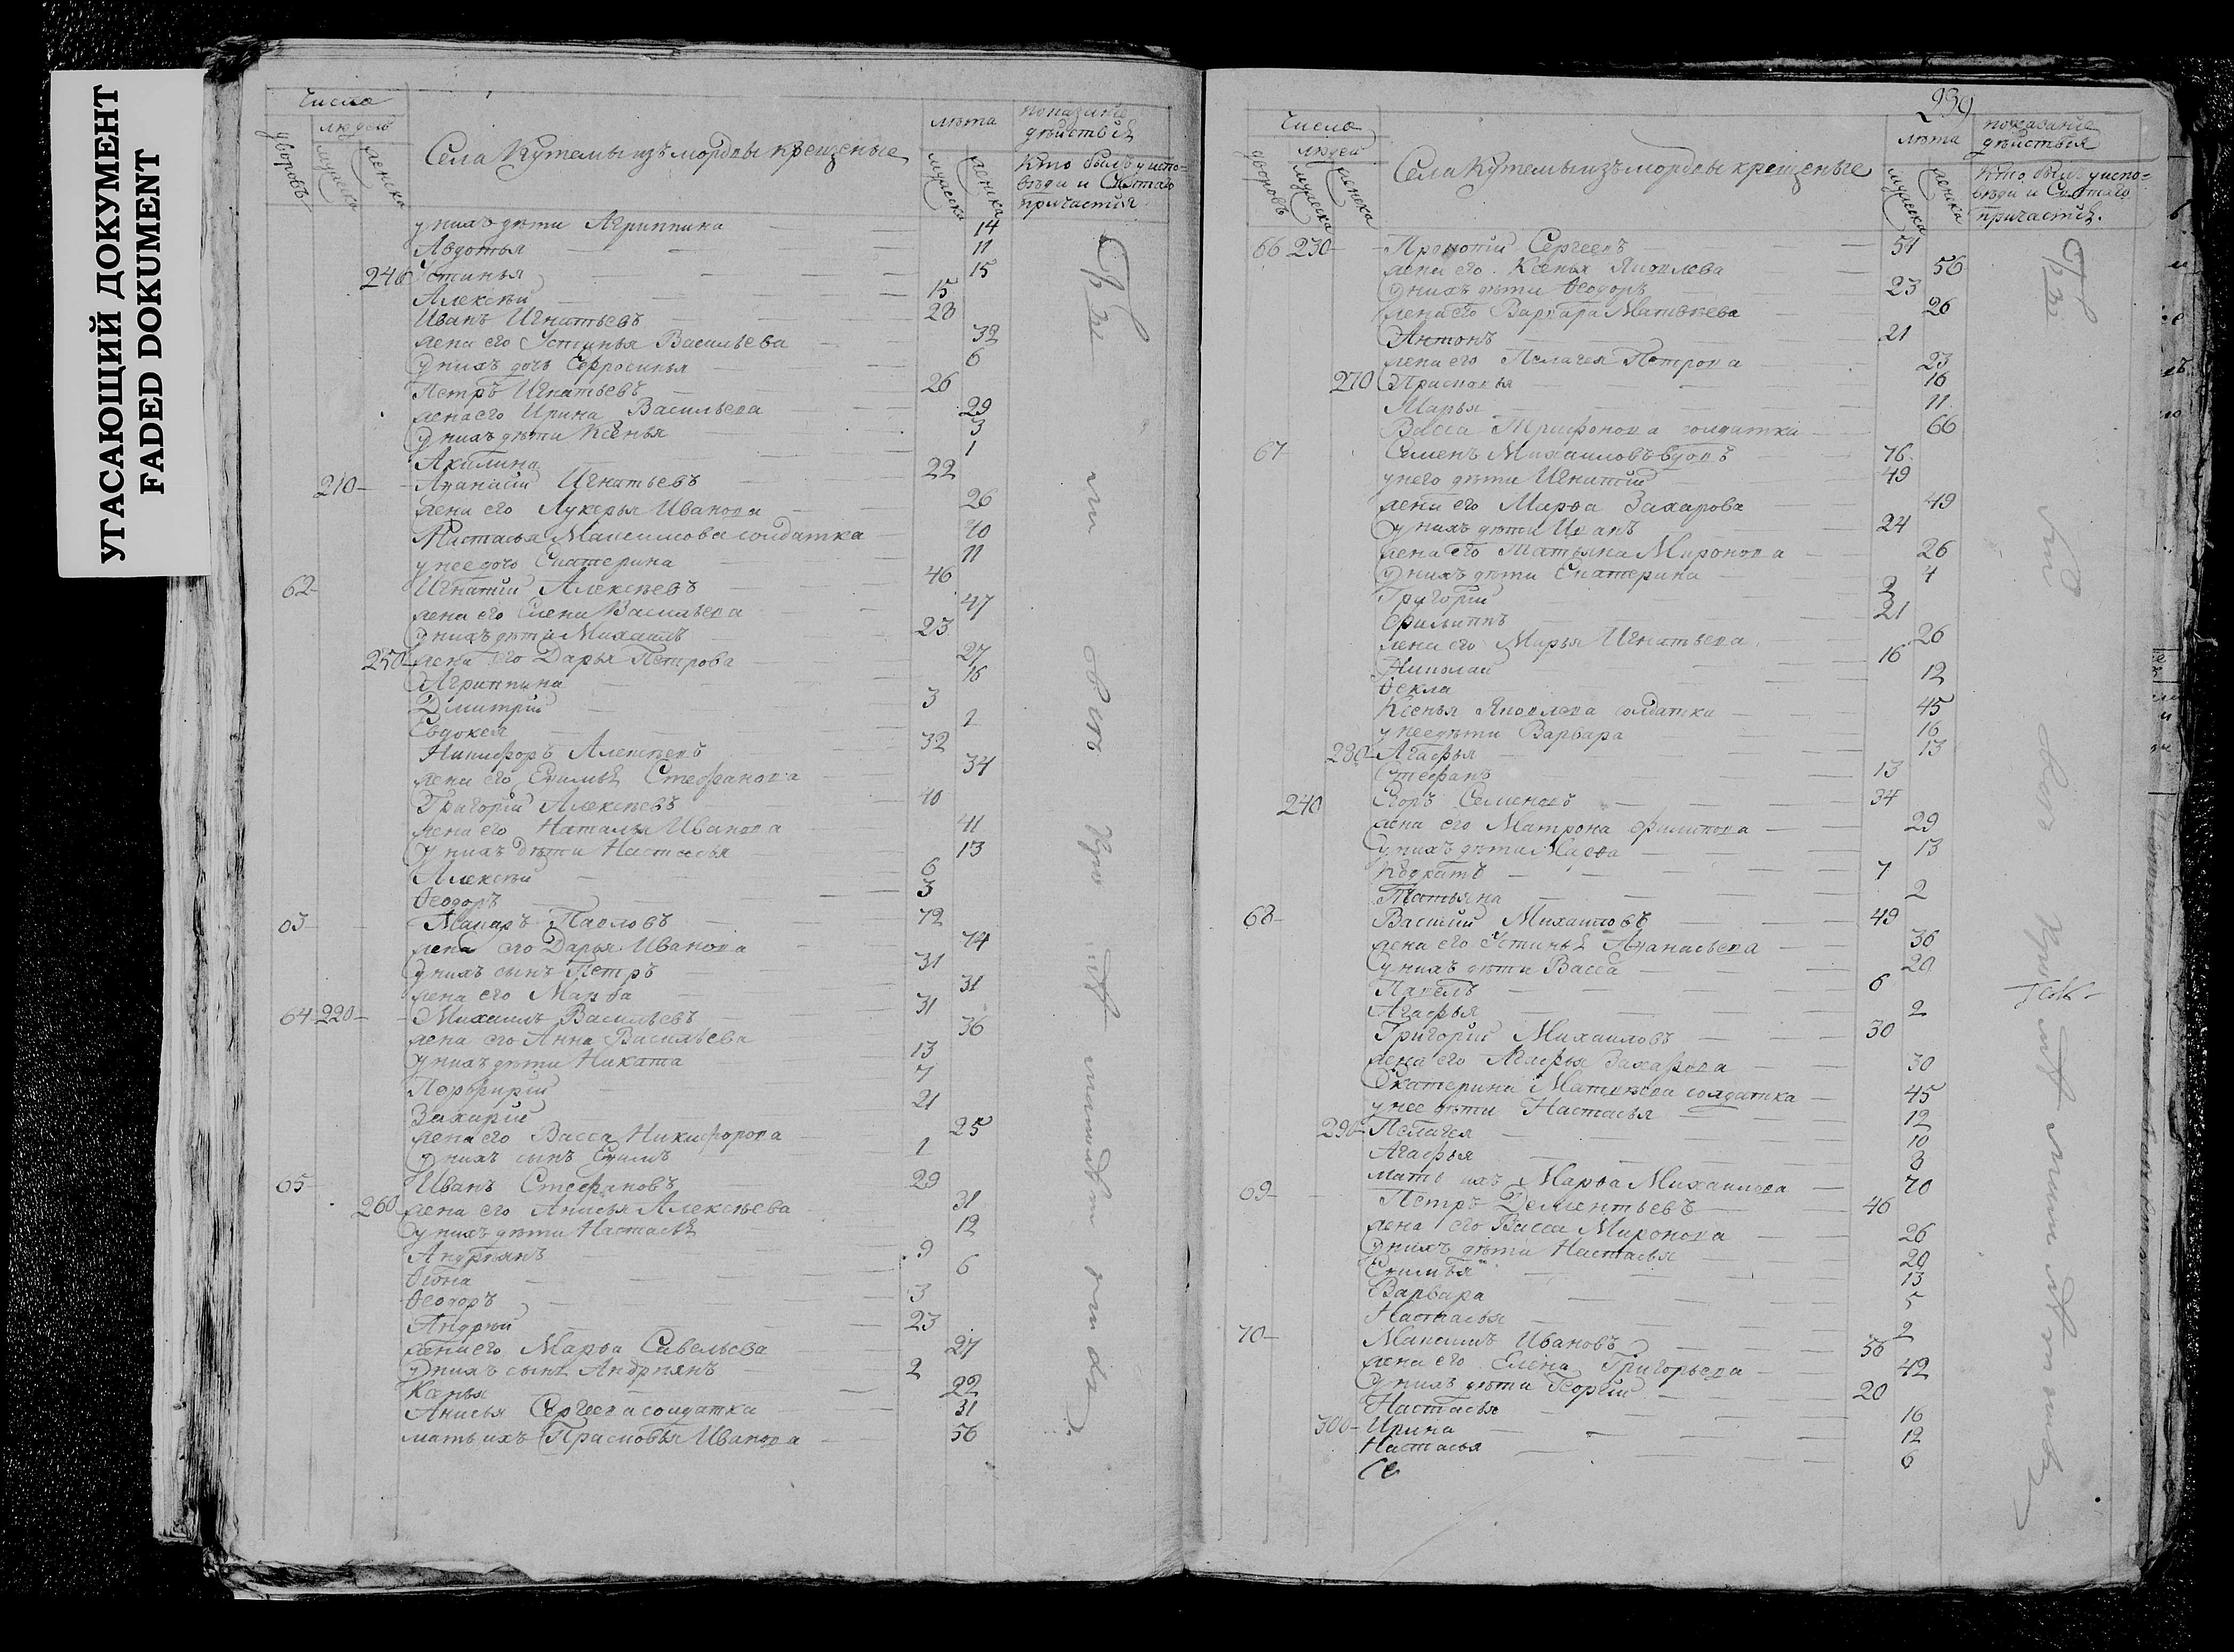 УГАСАЮЩИЙ ДОКУМЕНТ
FADED DOKUMENT
Числа
дворовъ
людей
мужеска
женска
Села Кутемы изъ мордвы крещеные
лѣта
мужеска
женска
показание дѣйствія
Кто былъ у испо-
вѣди и Святаго
причастія
у нихъ дѣти Агриппина 14
Авдотья 11
240 Устинья 15
Алексѣй 15
Иванъ Игнатьевъ 28
жена его Устинья Васильева 32
у нихъ дочь Ефросинья 6
Петръ Игнатьевъ 26
жена его Ирина Васильева 29
у нихъ дѣти Ксенья 3
Акилина 1
210 Аѳанасій Игнатьевъ 22
жена его Лукерья Иванова 26
Настасья Максимова солдатка 40
у нее дочь Екатерина 11
62 Игнатій Алексѣевъ 46
жена его Елена Васильева 47
у нихъ дѣти Михаилъ 23
250 жена его Дарья Петрова 27
Агриппина 16
Димитрій 3
Евдокея 1
Никифоръ Алексѣевъ 32
жена его Емилья Стефанова 34
Григорій Алексѣевъ 40
жена его Наталья Иванова 41
у нихъ дѣти Настасья 13
Алексѣй 6
Ѳеодоръ 3
63 Макаръ Павловъ 72
жена его Дарья Иванова 74
у нихъ сынъ Петръ 31
жена его Марѳа 31
64 220 Михаилъ Васильевъ 31
жена его Анна Васильева 36
у нихъ дѣти Никита 13
Порфирій 7
Захарій 21
жена его Васса Никифорова 25
у нихъ сынъ 1
65 Иванъ Стефановъ 29
260 жена его Анисья Алексѣева 31
у нихъ дѣти Настасья 12
Андреянъ 9
6
Ѳеодоръ 3
Андрей 23
жена его Марѳа Савельева 27
у нихъ сынъ Андреянъ 2
Ксенья 22
Анисья Сергеева солдатка 31
мать ихъ Прасковья Иванова 56
239
Числа
дворовъ
людей
мужеска
женска
Села Кутемы изъ мордвы крещеные
лѣта
мужеска
женска
показание
дѣйствія
Кто былъ у испо-
вѣди и Святаго
причастія.
66 230 Прокопій Сергеевъ 51
жена его Ксенья Яковлева 56
у нихъ дѣти Ѳеодоръ 23
жена его Варвара Матвѣева 26
Антонъ 21
жена его Пелагея Петрова 23
270 Прасковья 16
Марья 11
Васса Трифонова солдатка 66
67 Семенъ Михаиловъ вдовъ 76
у него дѣти Игнатій 49
жена его Марѳа Захарова 49
у нихъ дѣти Иванъ 24
жена его Татьяна Миронова 26
у нихъ дѣти Екатерина 4
Григорій 2
Филиппъ 21
жена его Марья Игнатьева 26
Николай 16
Ѳекла 12
Ксенья Яковлева солдатка 45
у нее дѣти Варвара 16
280 Агафья 13
Стефанъ 13
240 Егоръ Семеновъ 34
жена его Матрона Филипова 29
у нихъ дѣти Марѳа 13
Кодратъ 7
Татьяна 2
68 Василій Михаиловъ 49
жена его Устинья Аѳанасьева 36
у нихъ дѣти Васса 20
Павелъ 6
Агафья 2
Григорій Михаиловъ 30
жена его Агафья Захарова 30
Екатерина Матвѣева солдатка 45
у нее дѣти Настасья 12
290 Пелагея 10
Агафья 8
мать ихъ Марѳа Михаилова 70
69 Петръ Дементьевъ 46
жена его Васса Миронова 26
у нихъ дѣти Настасья 20
Емилья 13
Варвара 5
Настасья 2
70 Максимъ Ивановъ 36
жена его Елена Григорьева 42
у нихъ дѣти Георгій 20
Настасья 16
300 Ирина 12
Настасья 6